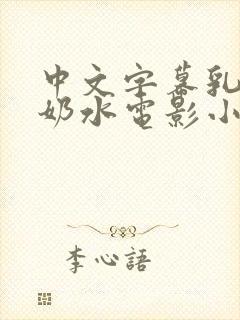 中文字幕乳
奶水电影小
李心語